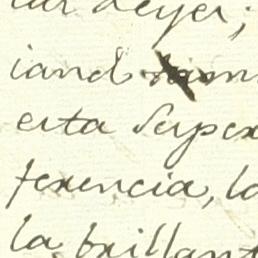 Leyes;
iand
esta Super
ferencia, la
la brillant